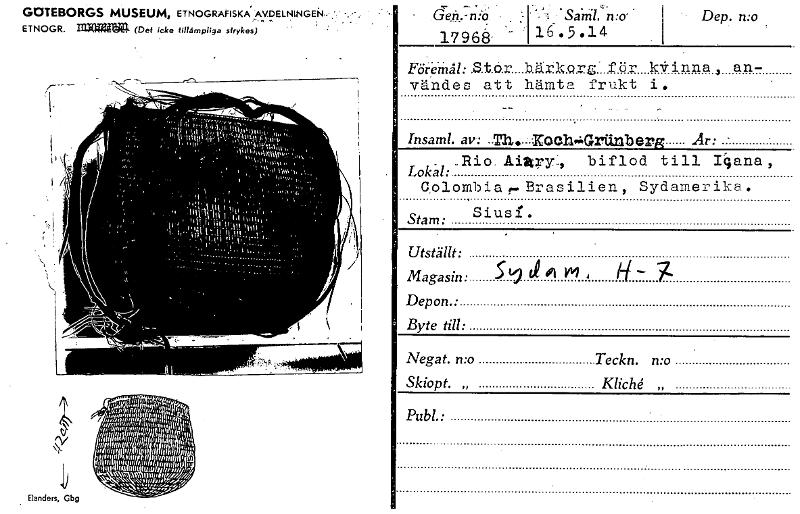 GÖTEBORGS MUSEUM, ETNOGRAFISKA AVDELNINGEN
ETNOGR. (Det icke tillämpliga strykes)
42cm
Elanders, Gbg
Gen. n:o Saml. n:o Dep. n:o
17968 16.5.14
Föremål: Stor bärkorg för kvinna, an-
vändes att hämta frukt i.
Insaml. av: Th. Koch-Grünberg År:
Lokal: Rio Aiary, biflod till Içana,
Colombia - Brasilien, Sydamerika.
Stam: Siusí.
Utställt:
Magasin: Sydam. H-7
Depon.:
Byte till:
Negat. n:o Teckn. n:o
Skiopt. „ Kliché „
Publ.: